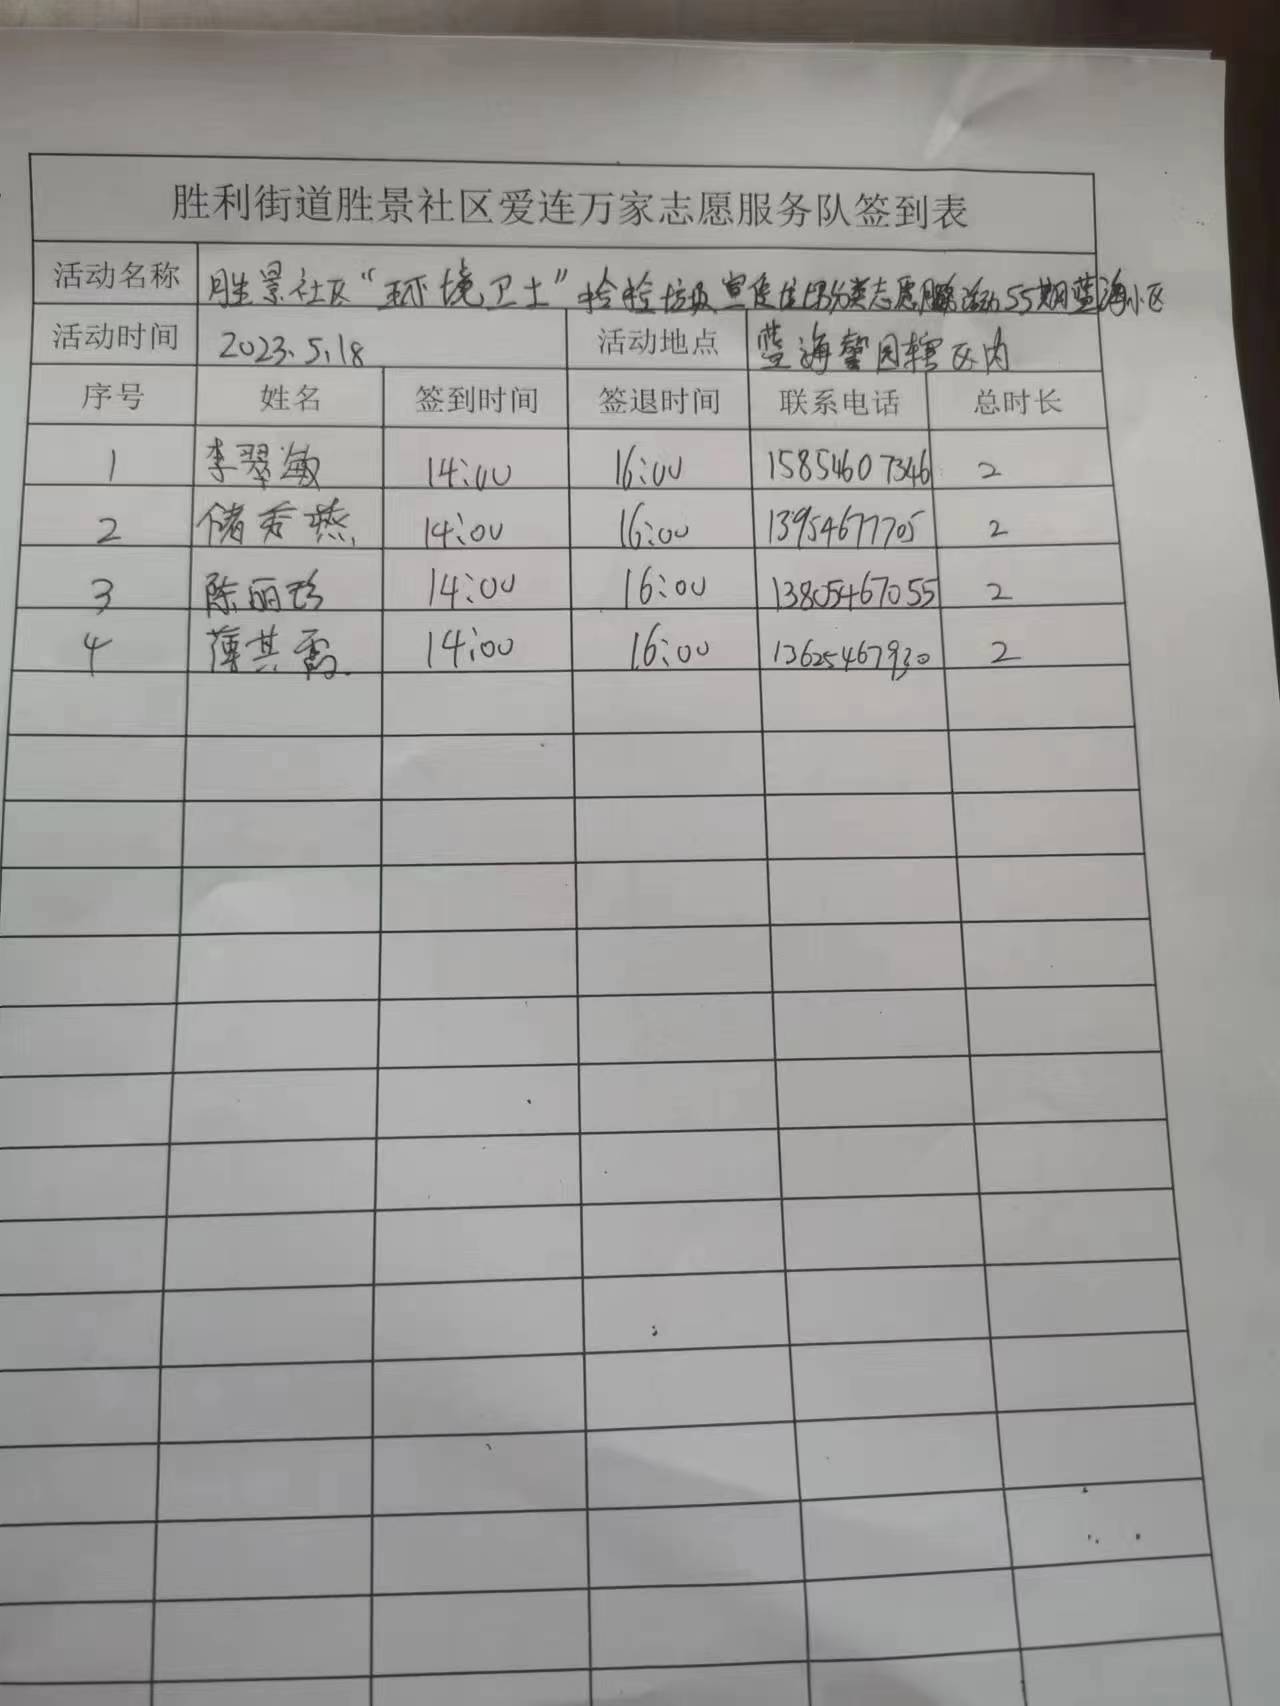 胜利街道胜景社区爱连万家志愿服务队签到表
活动名称 胜景社区“环境卫士”捡捡垃圾宣传垃圾分类志愿服务活动55期蓝海小区
活动时间 2023.5.18 活动地点 蓝海馨园辖区内
序号 姓名 签到时间 签退时间 联系电话 总时长
1 李翠敏 14:00 16:00 15854607346 2
2 储秀燕 14:00 16:00 13954677705 2
3 陈丽珍 14:00 16:00 13805467055 2
4 薄其霞 14:00 16:00 13625467930 2